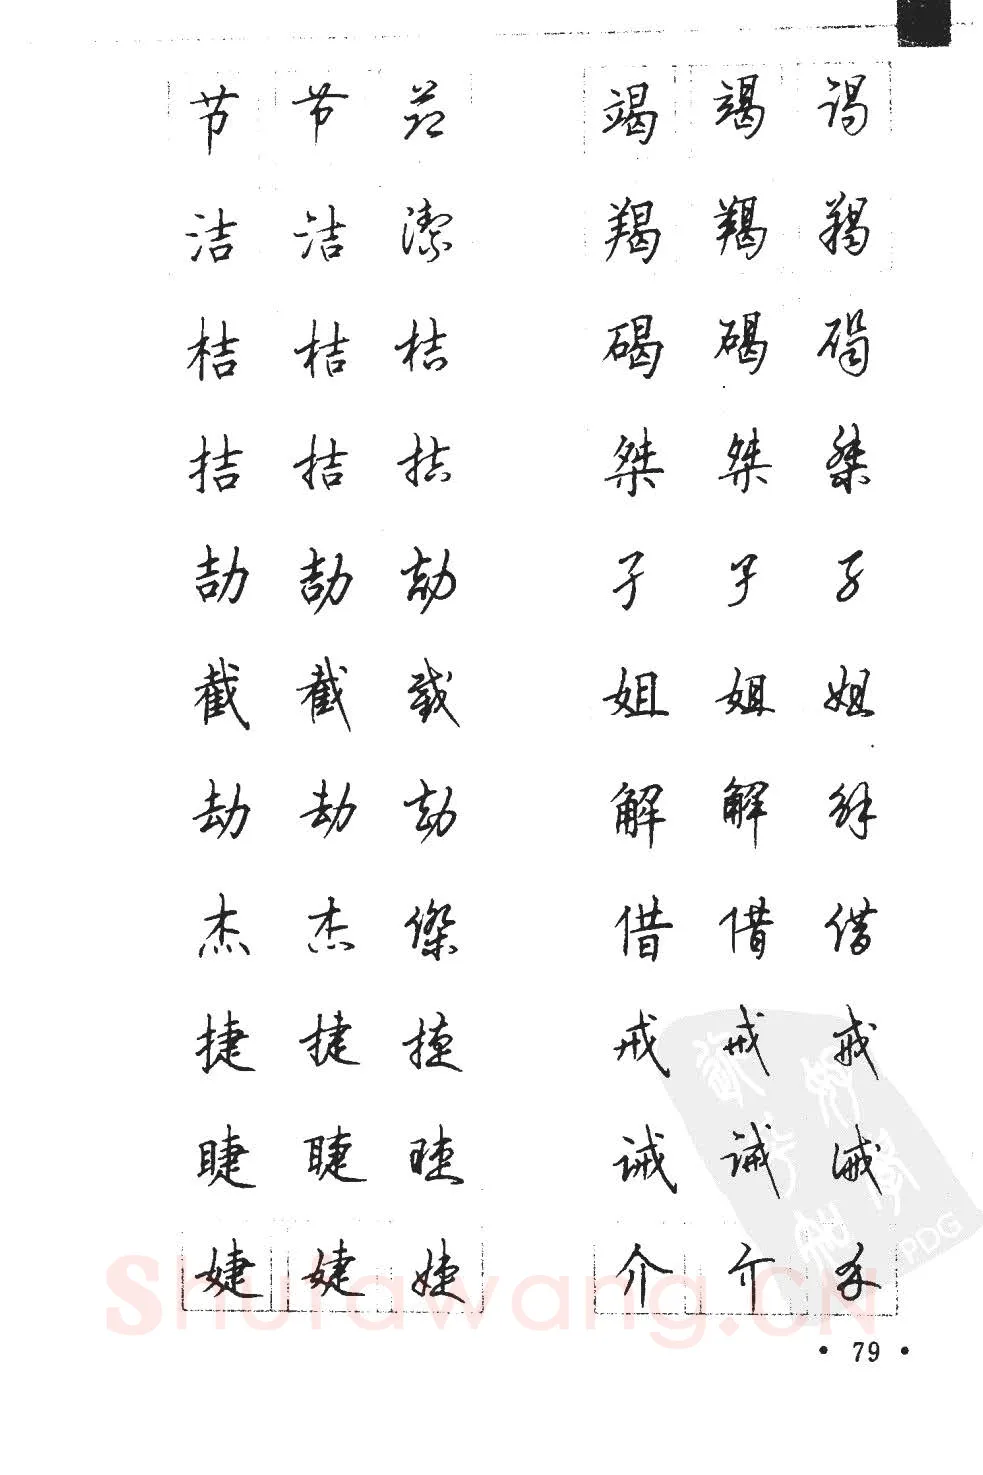 节 节 节 竭 竭 竭
洁 洁 潔 羯 羯 羯
桔 桔 桔 碣 碣 碣
拮 拮 拮 桀 桀 桀
劼 劼 劼 孑 孑 孑
截 截 截 姐 姐 姐
劫 劫 劫 解 解 解
杰 杰 傑 借 借 借
捷 捷 捷 戒 戒 戒
睫 睫 睫 诫 诫 诫
婕 婕 婕 介 介 介
Shufawang.CN
PDG
• 79 •